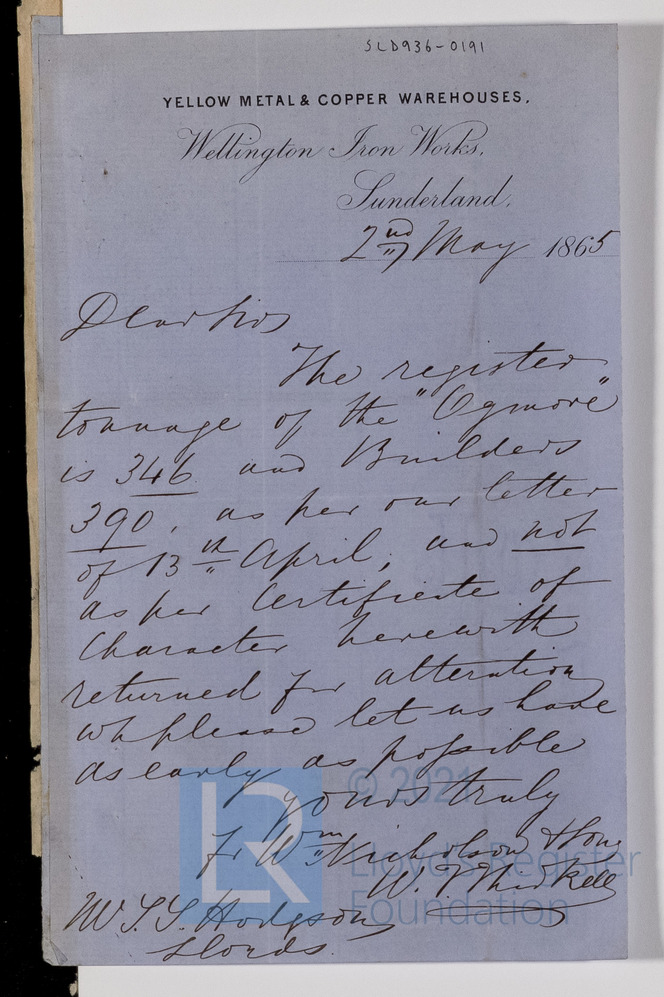 SLD936-0191
YELLOW METAL & COPPER WAREHOUSES.
Wellington Iron Works,
Sunderland,
2nd May 1865
Dear Sirs
The register
tonnage of the "Ogmore"
is 346 and Builders
390, as per our letter
of 13th April, and not
as per Certificate of
Character herewith
returned for alteration
wh please let us have
as early as possible
yours truly
for Wm Nicholson & Sons
W. Thirkell
Mr Hodgson
Lloyds.
© 2021
LR
Lloyd's Register
Foundation